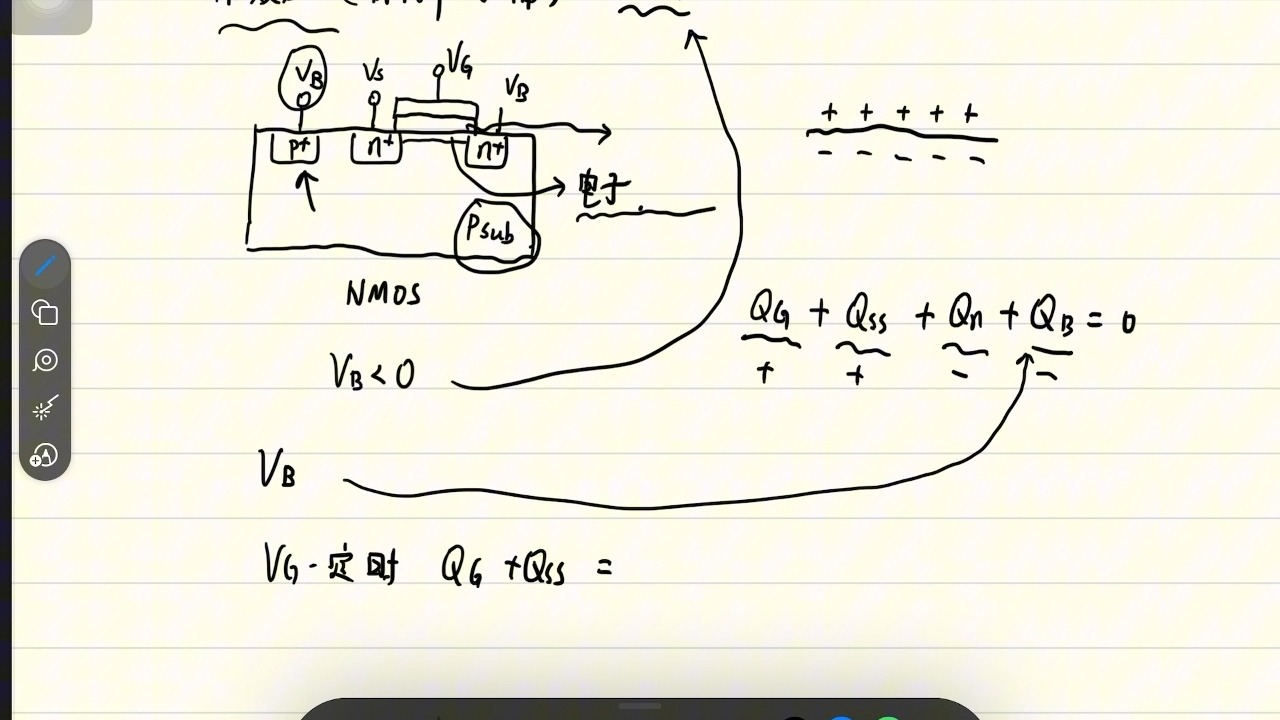 VB VS VG VB
+ + + + +
- - - - -
p+ n+ n+
电子
Psub
NMOS
QG + Qss + Qn + QB = 0
+ + - -
VB < 0
VB
VG 一定时 QG + Qss =